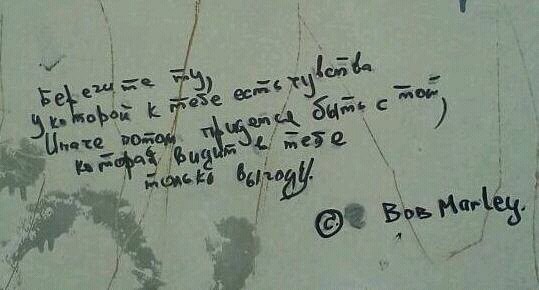 Берегите ту,
у которой к тебе есть чувства
Иначе потом придется быть с той,
которая видит в тебе
только выгоду.
© Bob Marley.